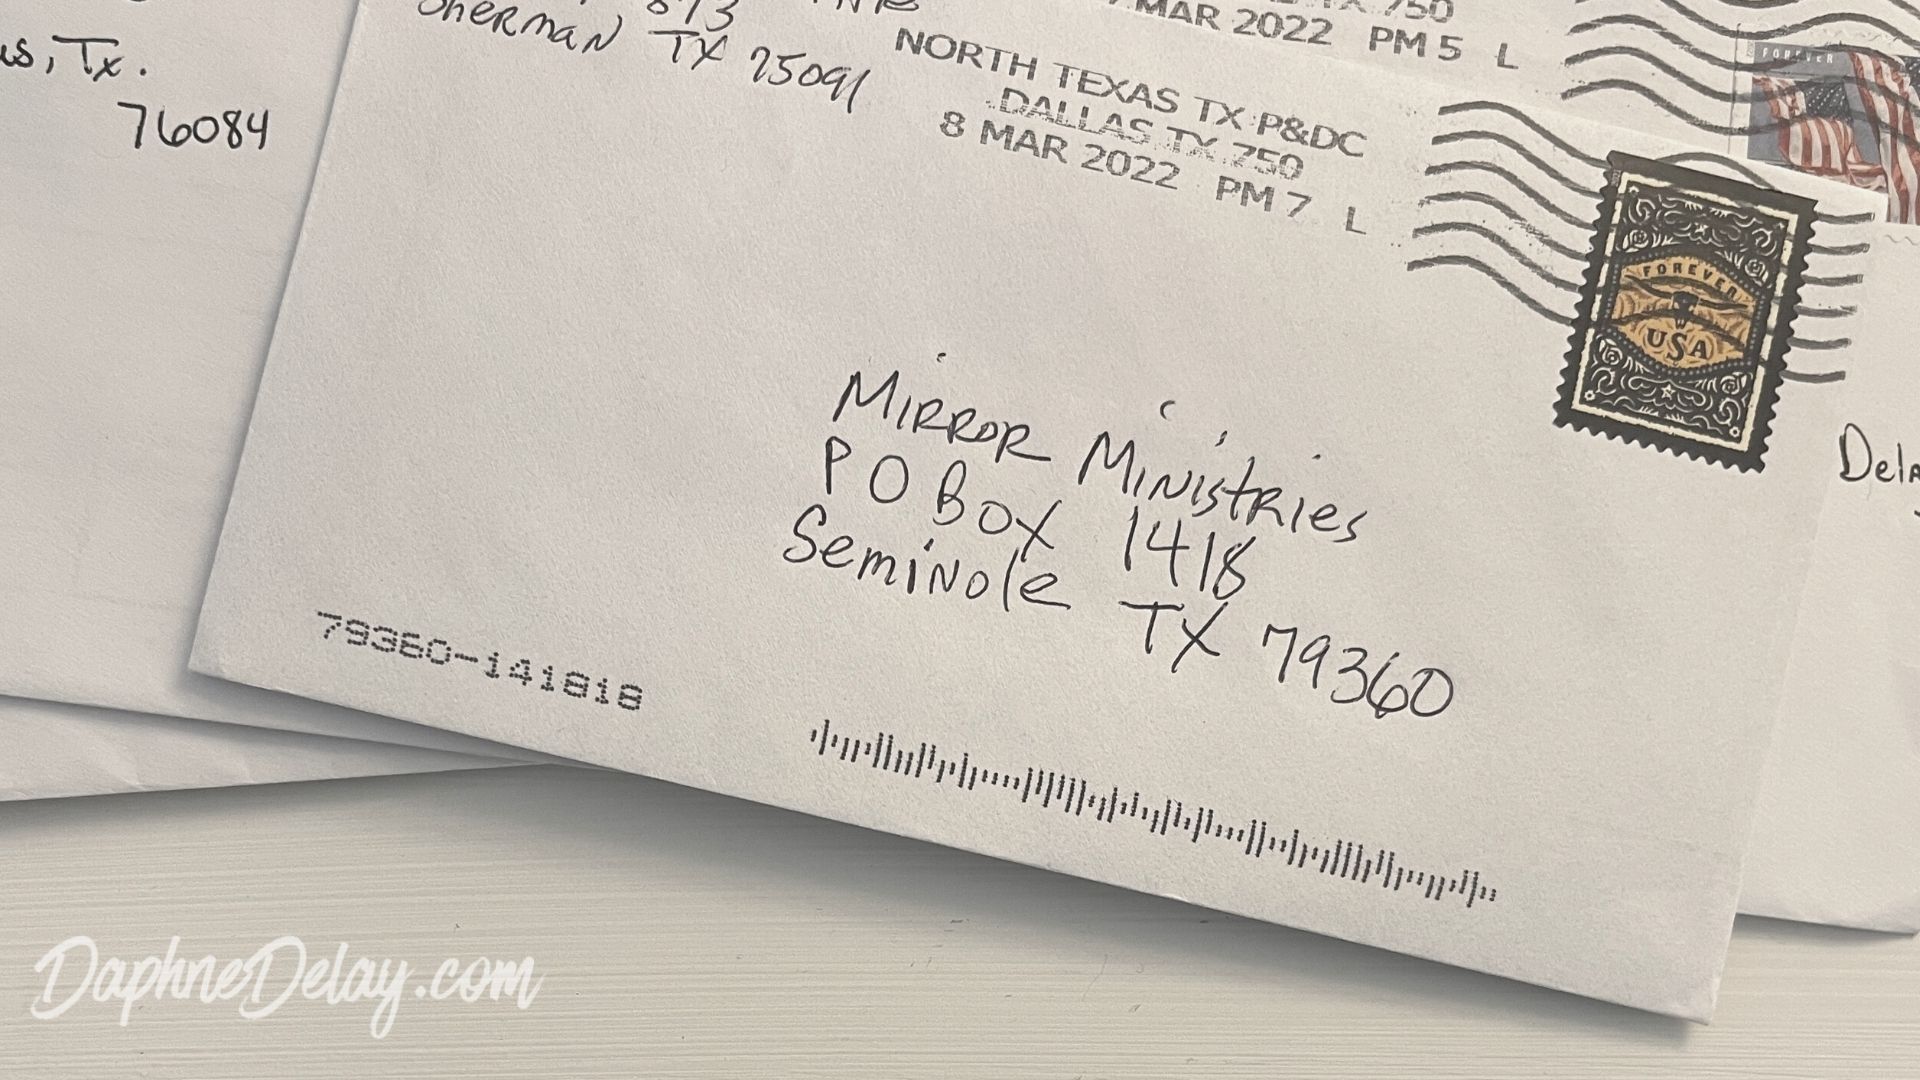 873
Sherman TX 75091
Tx.
76084
750
MAR 2022 PM 5 L
FOREVER
NORTH TEXAS TX P&DC
DALLAS TX 750
8 MAR 2022 PM 7 L
FOREVER
USA
Mirror Ministries
P O Box 1418
Seminole TX 79360
79360-141818
DaphneDelay.com